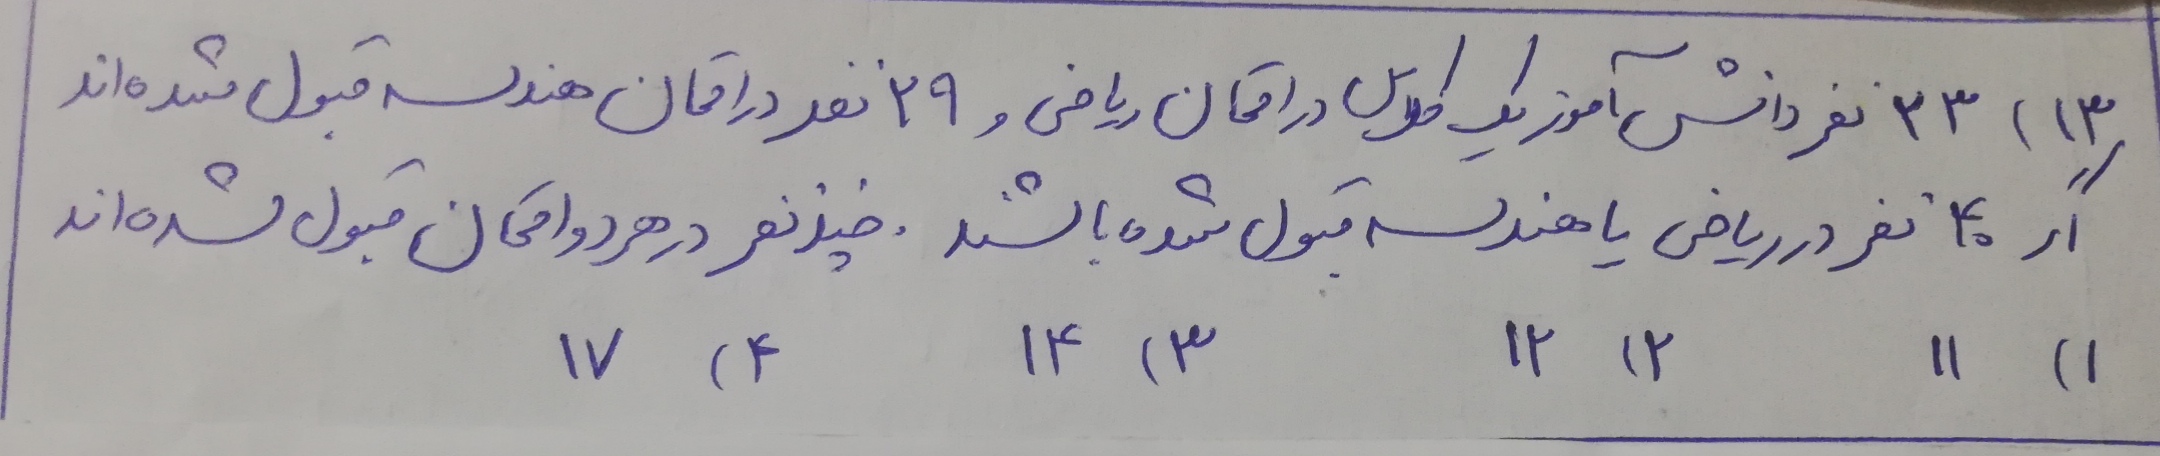 ۱۳) ۲۳ نفر دانش آموز یک کلاس در امتحان ریاضی و ۲۹ نفر در امتحان هندسه قبول شده اند
اگر ۴۰ نفر در ریاضی یا هندسه قبول شده باشند . چند نفر در هر دو امتحان قبول شده اند
۱) ۱۱ ۲) ۱۲ ۳) ۱۴ ۴) ۱۷